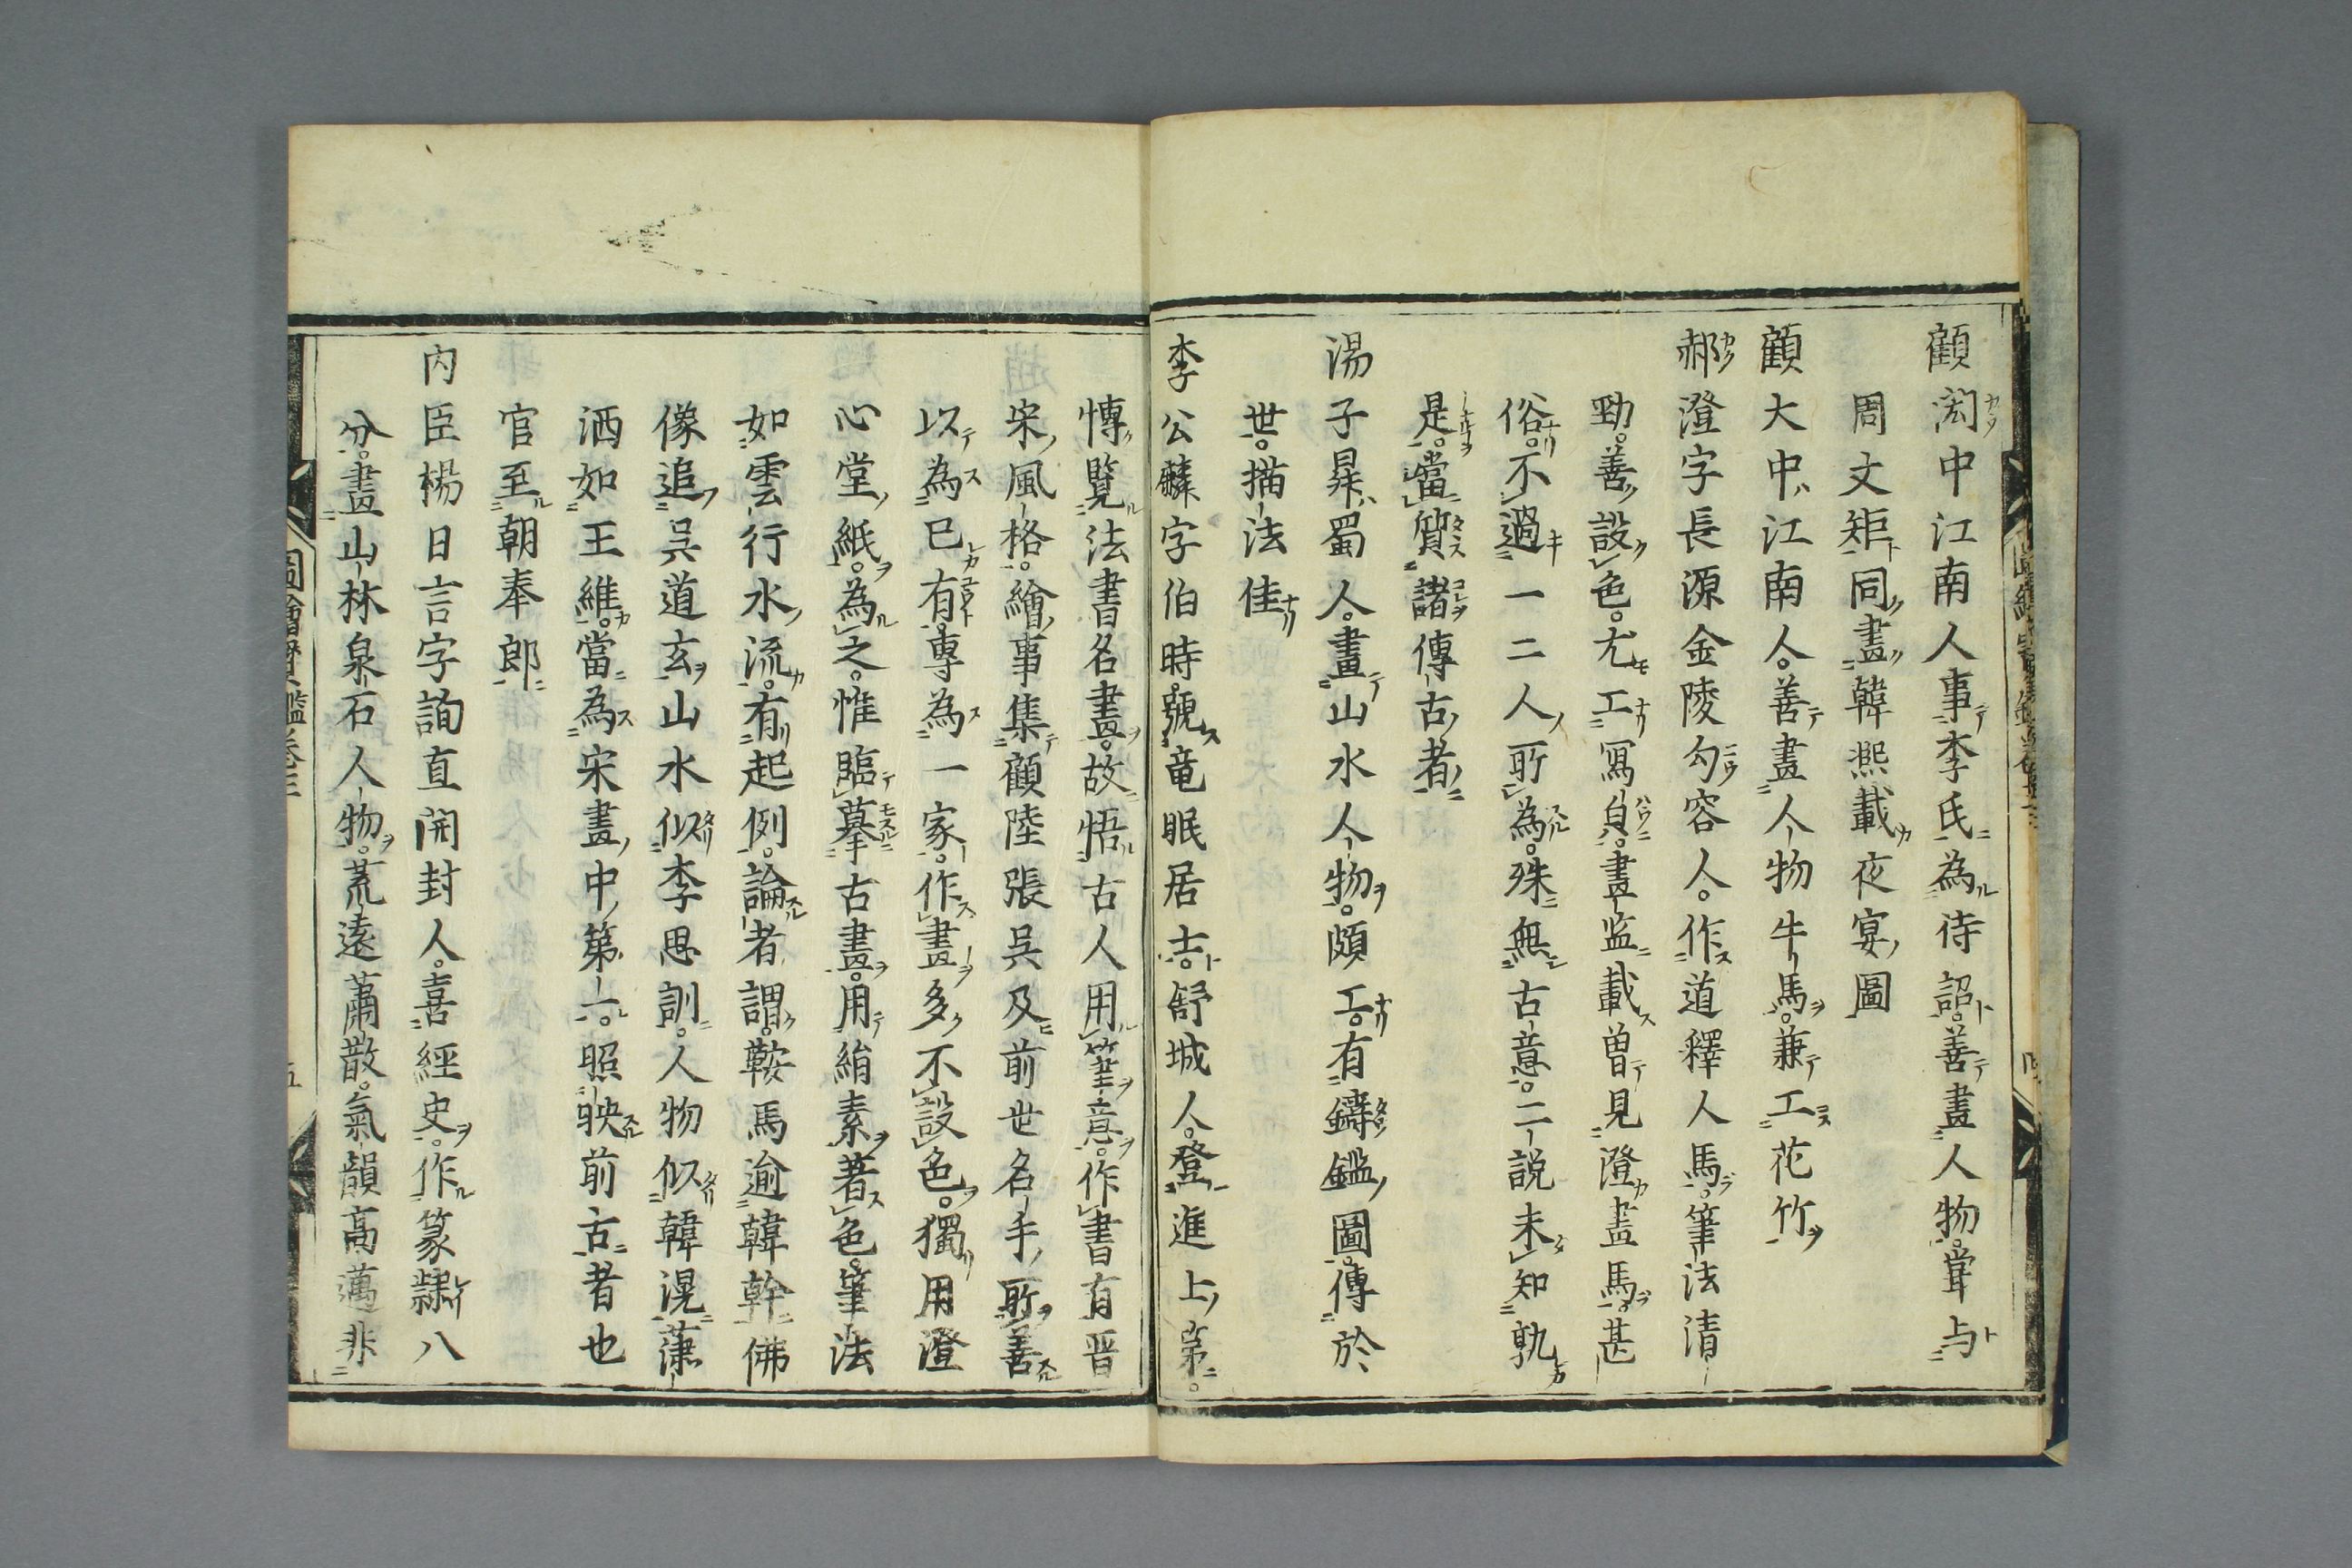 顧閎中江南人事李氏為待詔。善畫人物。甞与
周文矩同畫韓熙載夜宴圖
顧大中江南人。善畫人物牛馬。兼工花竹
郝澄字長源金陵勾容人。作道釋人馬。筆法清
勁。善設色。尤工寫皃。畫监載曽見澄畫馬。甚
俗。不過一二人所為。殊無古意。二説未知孰
是。當質諸傳古者
湯子昇蜀人。畫山水人物。頗工。有鑄鑑圖。傳於
世。描法佳
李公麟字伯時。號竜眠居士。舒城人。登進上第。
愽覽法書名畫。故悟古人用筆意。作書有晋
宋風格。繪事集顧陸張吳及前世名手所善
以為已有。專為一家。作畫多不設色。獨用澄
心堂紙。為之。惟臨摹古畫。用絹素著色。筆法
如雲行水流。有起例。論者謂。鞍馬逾韓幹佛
像追吳道玄山水似李思訓。人物似韓滉蕭
洒如王維。當為宋畫中第一。照映前古者也
官至朝奉郎
内臣楊日言字詢直開封人。喜經史。作篆隸八
分。畫山林泉石人物。荒遠蕭散。氣韻高邁非
圖繪寶鑑卷三
五